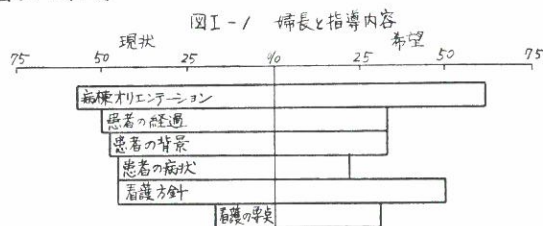 図I-1 婦長と指導内容
現状 希望
75 50 25 % 25 50 75
病棟オリエンテーション
患者の経過
患者の背景
患者の病状
看護方針
看護の要点